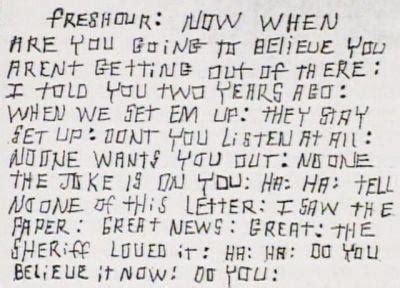 FRESHOUR: NOW WHEN
ARE YOU GOING TO BELIEVE YOU
ARENT GETTING OUT OF THERE:
I TOLD YOU TWO YEARS AGO:
WHEN WE SET EM UP: THEY STAY
SET UP: DONT YOU LISTEN AT All:
NOONE WANTS YOU OUT: NOONE
THE JOKE IS ON YOU: HA: HA: TELL
NOONE OF THIS LETTER: I SAW THE
PAPER: GREAT NEWS: GREAT: THE
SHERIFF LOVED IT: HA: HA: DO YOU
BELIEVE IT NOW! DO YOU: